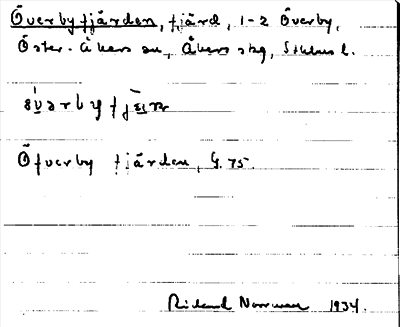 Överbyfjärden, fjärd, 1-2 Överby,
Öster-Åkers sn, Åkers skg, Sthlms l.
Öfverby fjärden, G. 75.
Rickard Norrman 1934.